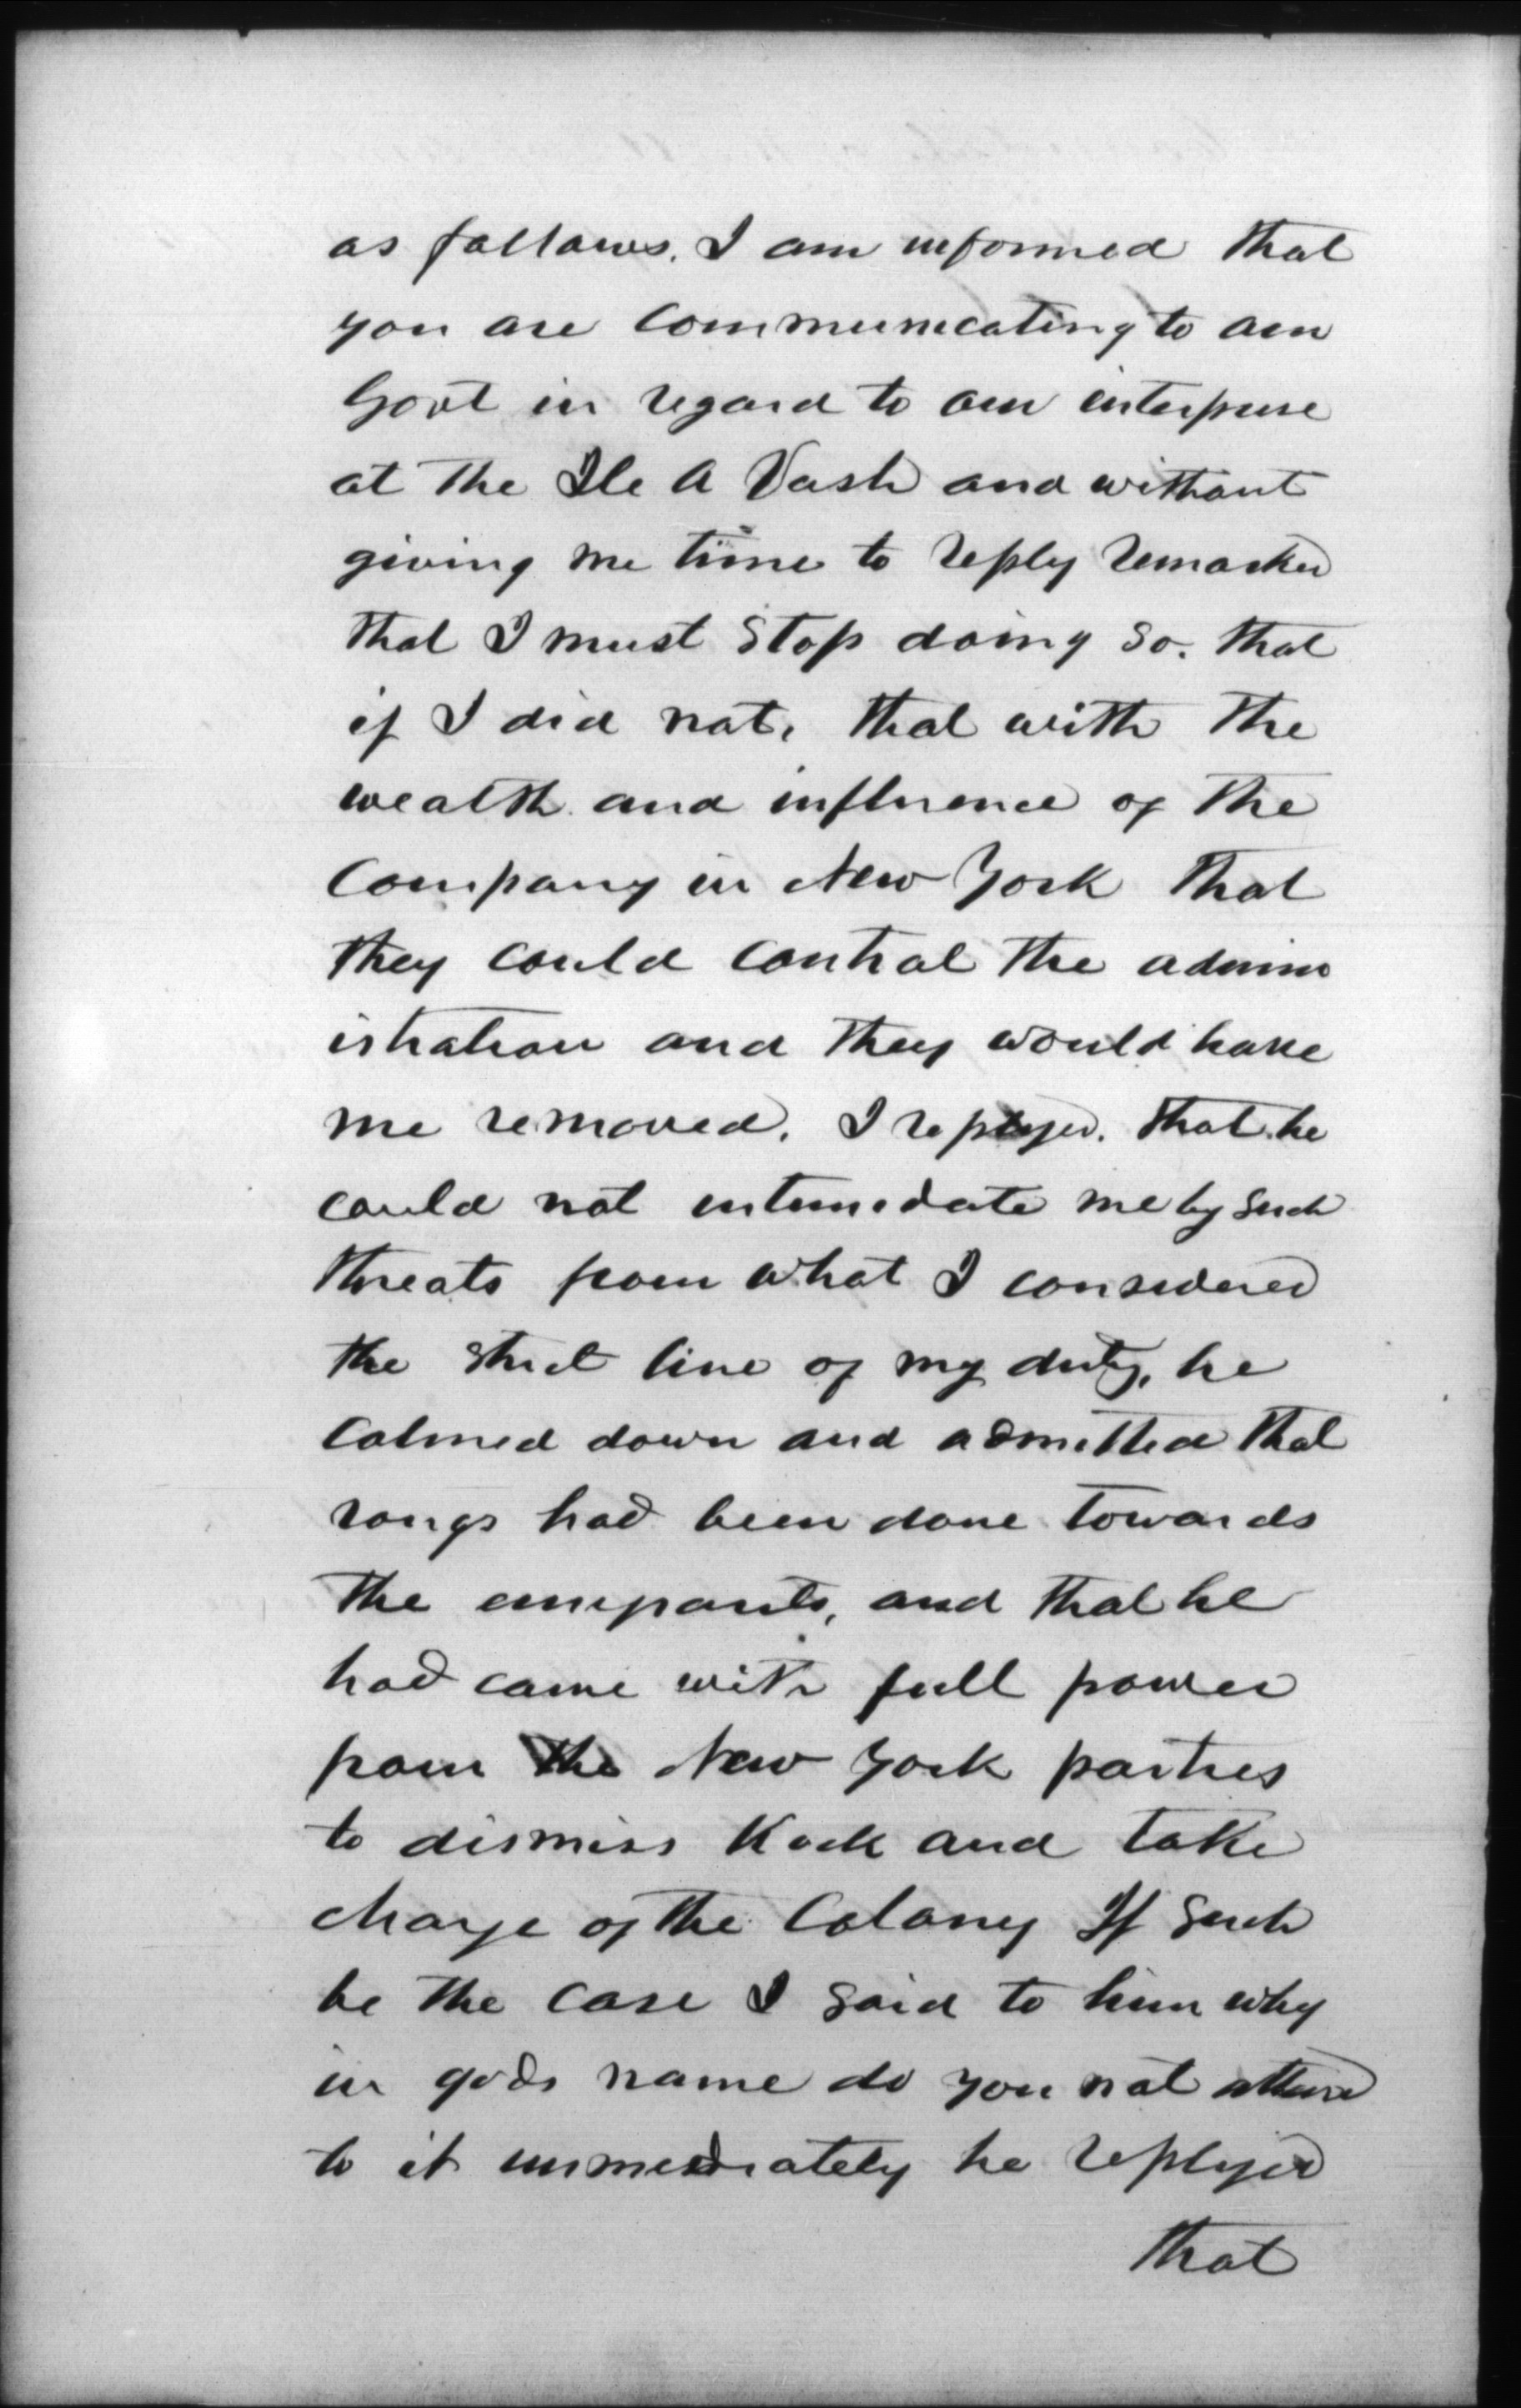 as follows. I am informed that
you are communicating to our
Govt in regard to our interprise
at the Ile A Vash and without
giving me time to reply remarked
that I must stop doing so. that
if I did not, that with the
wealth and influence of the
Company in New York that
they could control the admin
istration and they would have
me removed. I replyed. that he
could not intimidate me by such
threats from what I considered
the strict line of my duty, he
calmed down and admitted that
rongs had been done towards
the emigrants, and that he
had came with full power
from the New York parties
to dismiss Kock and take
charge of the Colony If such
be the case I said to him why
in gods name do you not attend
to it immediately he replyed
that